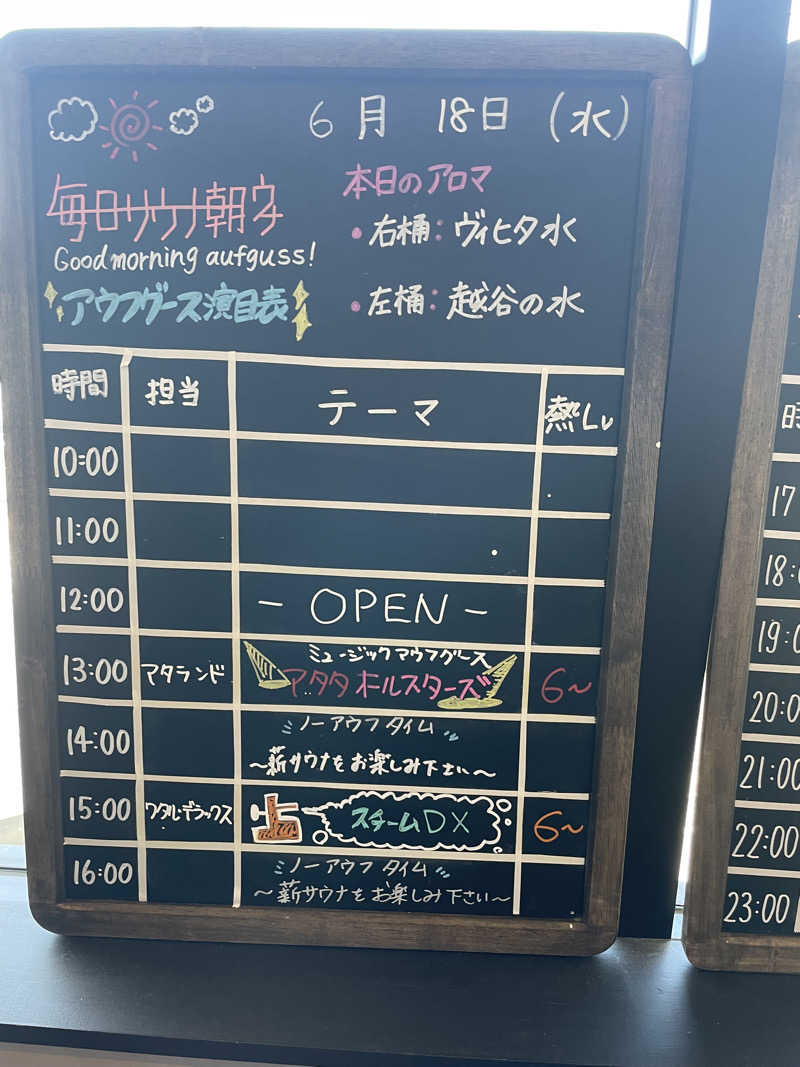 6月 18日 (水)
毎日サウナ朝ウ
Good morning aufguss!
アウフグース演目表
本日のアロマ
・右桶:ヴィヒタ水
・左桶:越谷の水
時間 担当 テーマ 熱Lv
10:00
11:00
12:00 - OPEN -
13:00 アタランド ミュージックアウフグース アタタオールスターズ 6~
14:00 ノーアウフタイム
~薪サウナをお楽しみ下さい~
15:00 ワタル・デラックス スチームDX 6~
16:00 ノーアウフタイム
~薪サウナをお楽しみ下さい~
時
17
18:
19:0
20:0
21:00
22:00
23:00